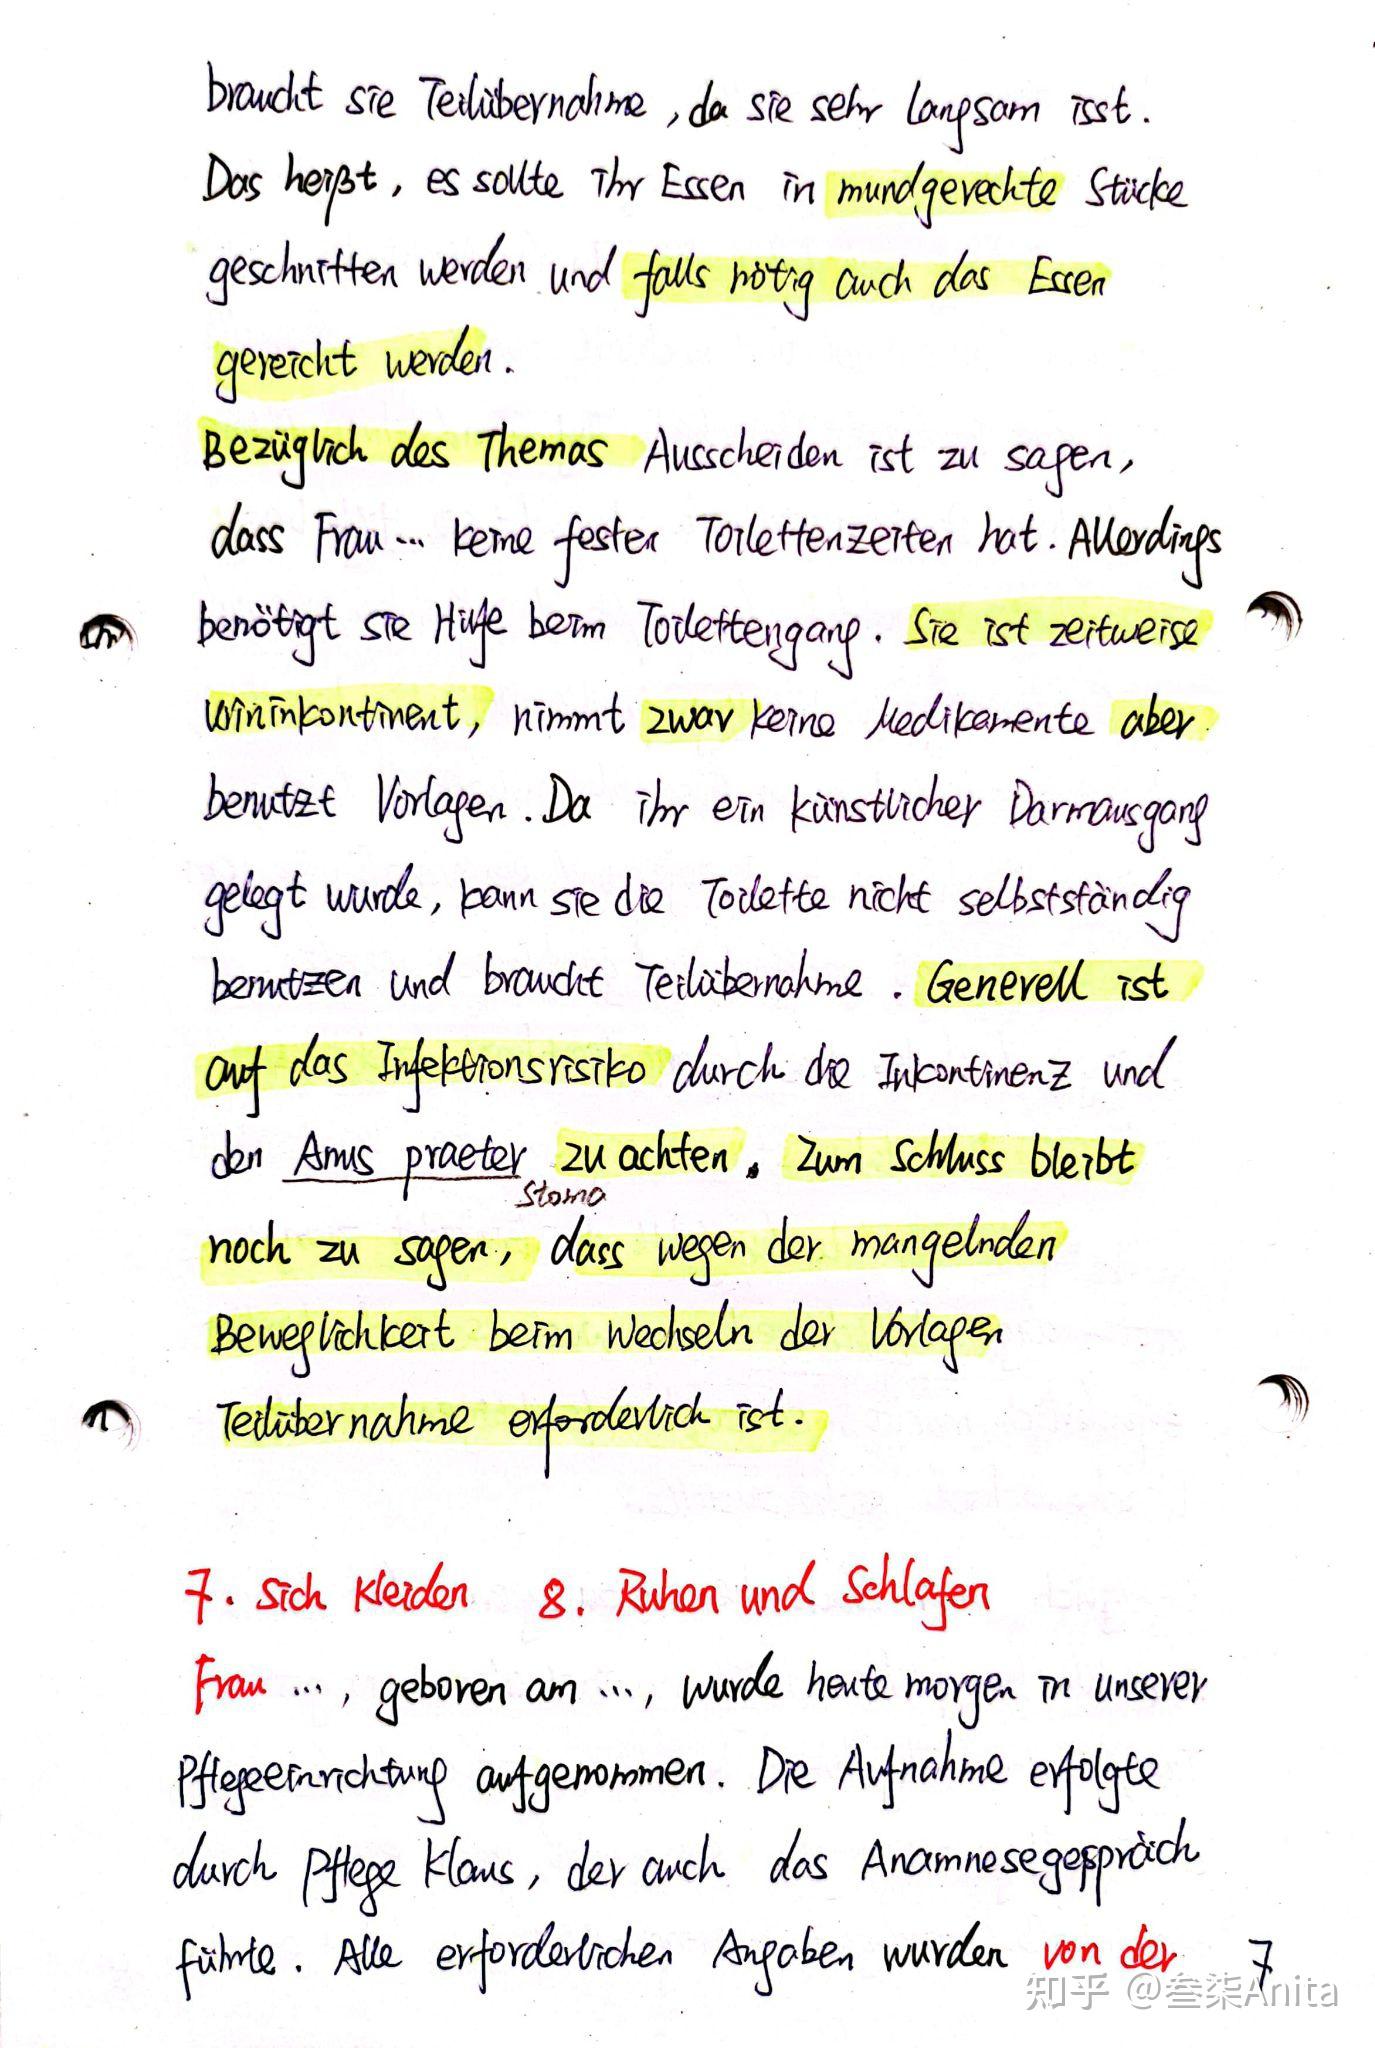 braucht sie Teilübernahme, da sie sehr langsam isst.
Das heißt, es sollte ihr Essen in mundgerechte Stücke
geschnitten werden und falls nötig auch das Essen
gereicht werden.
Bezüglich des Themas Ausscheiden ist zu sagen,
dass Frau... keine festen Toilettenzeiten hat. Allerdings
benötigt sie Hilfe beim Toilettengang. Sie ist zeitweise
urininkontinent, nimmt zwar keine Medikamente aber
benutzt Vorlagen. Da ihr ein künstlicher Darmausgang
gelegt wurde, kann sie die Toilette nicht selbstständig
benutzen und braucht Teilübernahme. Generell ist
auf das Infektionsrisiko durch die Inkontinenz und
den Anus praeter zu achten. Zum Schluss bleibt
Stoma
noch zu sagen, dass wegen der mangelnden
Beweglichkeit beim Wechseln der Vorlagen
Teilübernahme erforderlich ist.
7. Sich kleiden 8. Ruhen und Schlafen
Frau ..., geboren am ..., wurde heute morgen in unserer
Pflegeeinrichtung aufgenommen. Die Aufnahme erfolgte
durch Pflege Klaus, der auch das Anamnesegespräch
führte. Alle erforderlichen Angaben wurden von der
7
知乎 @叁柒Anita